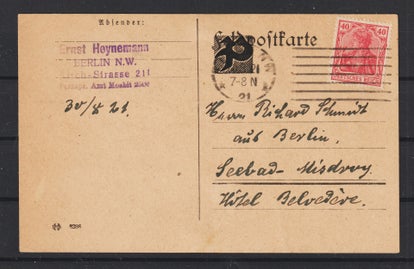 Absender:
Ernst Heynemann
BERLIN N.W.
-Strasse 211
Amt Moabit
30/8 21.
Feldpostkarte
P
7-8 N
21
40 40
DEUTSCHES REICH
Herrn Richard Schmidt
aus Berlin.
Seebad-Misdroy
Hôtel Belvedère.